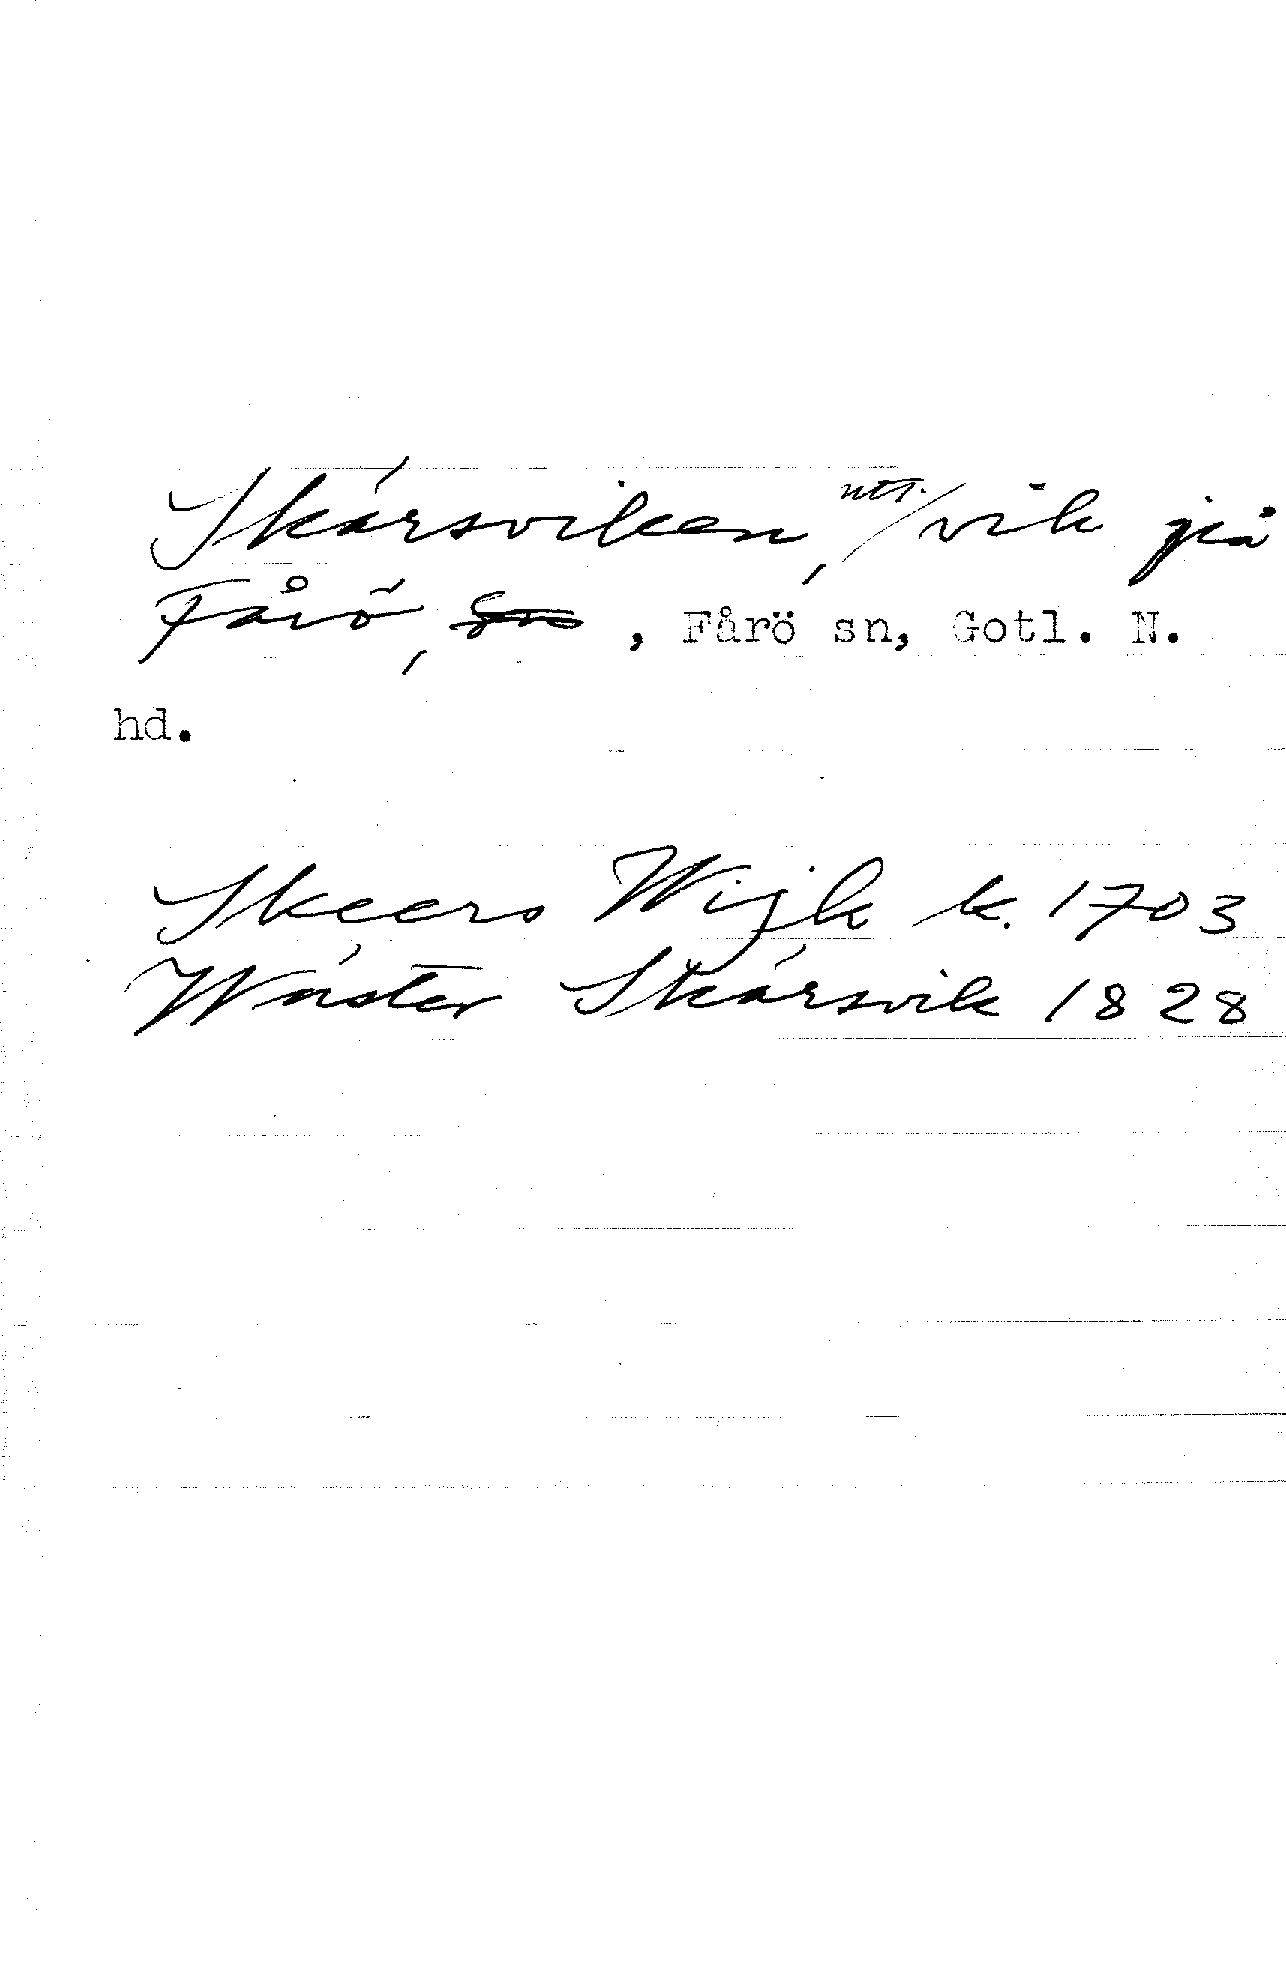 Skärsviken, / vik på
Fårö, , Fårö sn, Gotl. N.
hd.
Skeers Wijk k. 1703
Wäster Skärsvik 1828